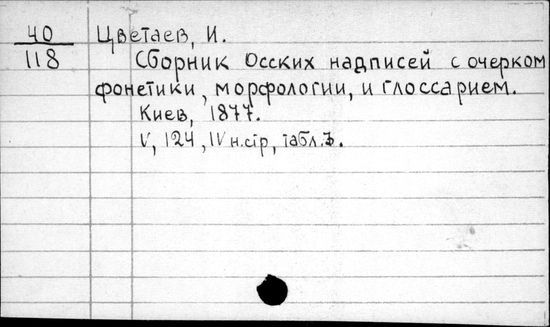 40
118
Цветаев, И.
Сборник Осских надписей с очерком
фонетики, морфологии, и глоссарием.
Киев, 1877.
V, 124, IV н.стр, табл.